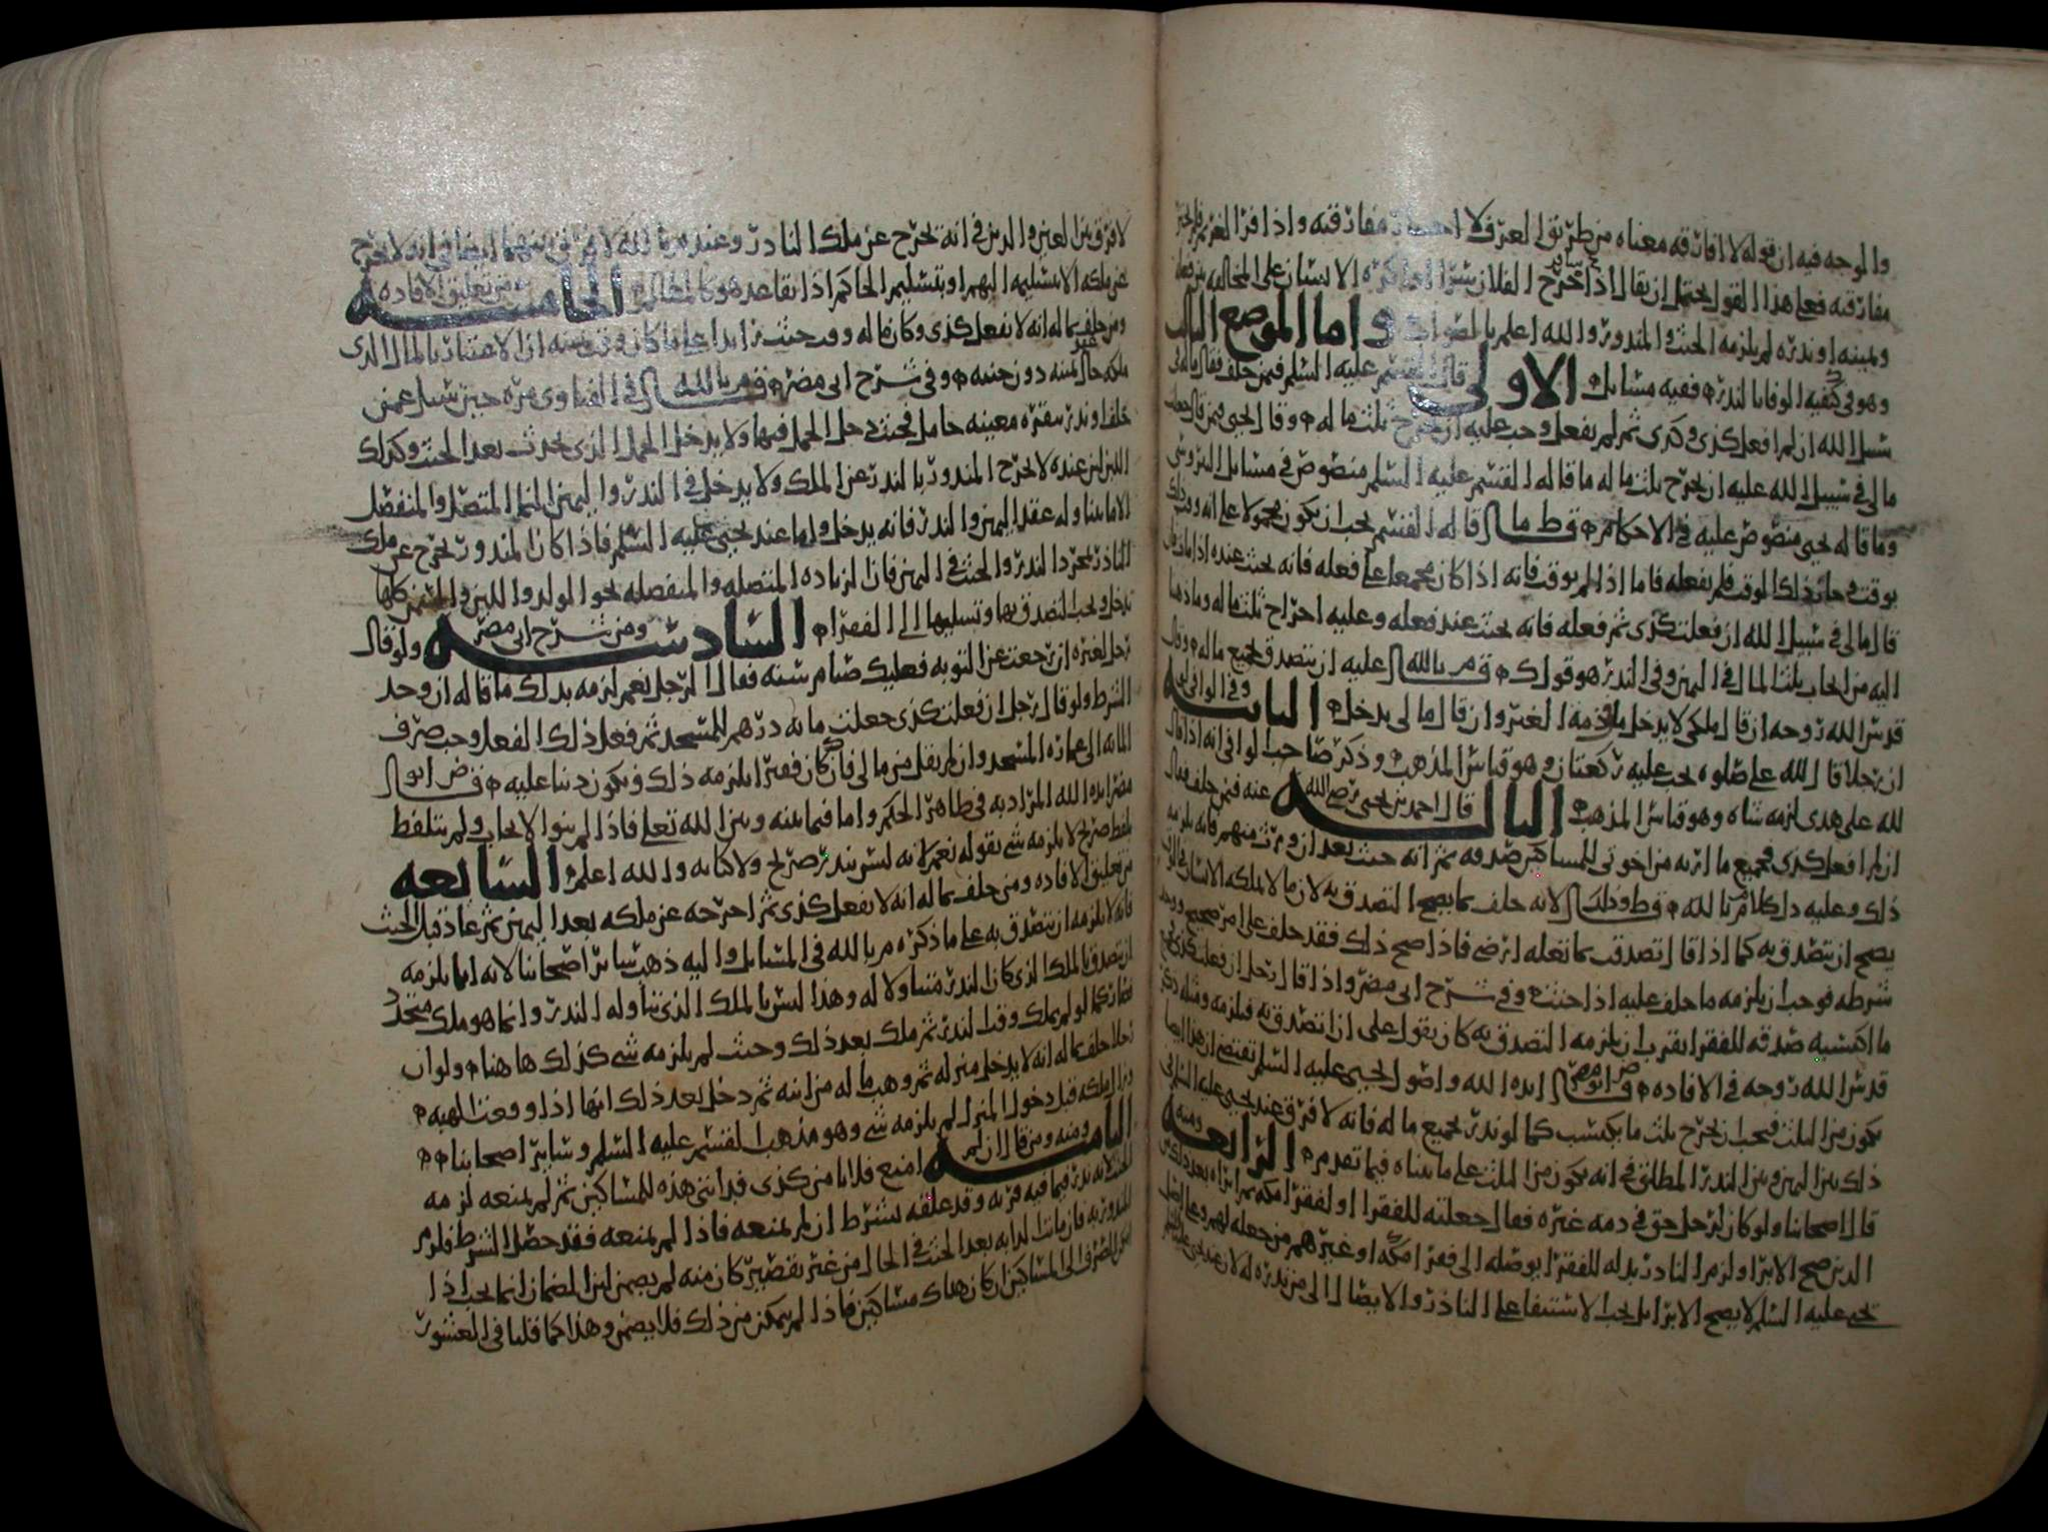 والوجه فيه ان قوله لا افارقه معناه من طريق العرف لا مفارقته واذا فر الغريم
مفارقته فعلى هذا القول يحتمل ان يقال اذا خرج الفلان الانسان على المخالفه
ويمينه او نذره لم يلزمه الحنث والمندور والله اعلم بالصواب واما الموضع الثالث
وهو في كيفيه الوفا بالندر ففيه مسايل الاولى قال القسم عليه السلم فيمن حلف فقال مالي في
سبيل الله ان لم افعل كذى وكذى ثم لم يفعل وجب عليه ان يخرج ثلث ماله وقال يحيى فيمن قال جعلت
مالي في سبيل الله عليه ان يخرج ثلث ماله ما قاله القسم عليه السلم منصوص في مسايل النيروسي
وما قاله يحيى منصوص عليه في الاحكام قاله القسم يجب ان يكون محمولا على انه وقت
يوقت ذلك الوقت فلم يفعله فاما اذا لم يوقت فانه اذا كان مجمعا على فعله فانه يحنث عنده اذا مات
قال مالي في سبيل الله ان فعلت كذى ثم فعله فانه يحنث عند فعله وعليه اخراج ثلث ماله وما ذهبنا
اليه من ايجاب ثلث المال في اليمين وفي الندر هو قول عليه ان يتصدق بجميع ماله
قدس الله روحه ان قال ملكي لا يدخل ما في ذمه الغير وان قال مالي يدخل الثانيه وفي الوافي
ان رجلا قال لله علي صلوه يجب عليه ركعتان وهو قياس المذهب وذكر صاحب الوافي انه اذا قال
لله علي هدى لزمه شاه وهو قياس المذهب الثالثه قال احمد بن يحيى رضي الله عنه فيمن حلف فقال
ان لم افعل كذى فجميع ما ارثه من اخوتي للمساكين صدقه ثم انه حنث بعد ان ورث منهم فانه يلزمه
ذلك وعليه دل كلام م بالله لانه حلف بما يصح التصدق به لان ما لا يملكه الانسان
يصح ان يتصدق به كما اذا قال تصدقت بما تغله ارضى فاذا صح ذلك فقد حلف على امر صحيح
شرطه فوجب ان يلزمه ما حلف عليه اذا حنث وفي شرح ابي مضر واذا قال رجل ان فعلت كذى
ما اكتسبه صدقه للفقرا يقرب ان يلزمه التصدق به كان يقول على ان اتصدق به فيلزمه ومثله ذكر
قدس الله روحه في الافاده ايده الله واصول يحيى عليه السلم تقتضي ان هذا ايضا
يكون من الثلث فيجب ان يخرج ثلث ما يكتسب كما لو ندر بجميع ماله فانه لا فرق عند يحيى عليه السلم في
ذلك بين اليمين وبين الندر المطلق في انه يكون من الثلث على ما بيناه فيما تقدم الرابعه ومنه
قال اصحابنا ولو كان لرجل حق في ذمه غيره فقال جعلته للفقرا او لفقرا مكه ثم ابراه بعد ذلك من
الدين صح الابرا ولزم النادر بدله للفقرا يوصله الى فقرا مكه او غيرهم من جعله لهم وعلى اصل
يحيى عليه السلم لا يصح الابرا بل يجب الاستيفا على النادر والايصال الى من نذره له لان عند يحيى عليه السلم
لا فرق بين العين والدين في انه يخرج عن ملك النادر وعند م بالله لا فرق بينهما ايضا في انه لا يخرج
عن ملكه الا بتسليمه اليهم او بتسليم الحاكم اذا تقاعد هو كالمطالب الخامسه من تعليق الافاده
ومن حلف بماله انه لا يفعل كذى وكان ماله وقت حنث زايدا على ما كان وقت يمينه ان الاعتبار بالمال الذى
ملكه حال يمينه دون حنثه وفي شرح ابي مضر في الفتاوى مره حين سيل عمن
حلف او ندر ببقره معينه حامل فحنث دخل الحمل فيها ولا يدخل الحمل الذى يحدث بعد الحنث وكذلك
اللبن لان عنده لا يخرج المندور بالندر عن الملك ولا يدخل في الندر واليمين النما المتصل والمنفصل
الا ما يتناوله عقد اليمين والندر فانه يدخل واما عند يحيى عليه السلم فاذا كان المندور يخرج عن ملك
النادر بمجرد الندر والحنث في اليمين فان الزياده المتصله والمنفصله نحو الولد واللبن والثمر كلها
تدخل ويجب التصدق بها وتسليمها الى الفقرا السادسه ومن شرح ابي مضر ولو قال
رجل لغيره ان رجعت عن التوبه فعليك صيام سنه فقال الرجل نعم لزمه بدلك ما قاله ان وجد
الشرط ولو قال رجل ان فعلت كذى جعلت مائه درهم للمسجد ثم فعل ذلك الفعل وجب صرف
المائه الى عماره المسجد وان لم يقل من مالي فان كان فقيرا يلزمه ذلك ويكون دينا عليه
مضر ايده الله المراد به في ظاهر الحكم واما فيما بينه وبين الله تعلى فاذا لم ينو الايجاب ولم يتلفظ
بلفظ صريح لا يلزمه شي بقوله نعم لانه ليس بندر صريح ولا كنايه والله اعلم السابعه
من تعليق الافاده ومن حلف بماله انه لا يفعل كذى ثم اخرجه عن ملكه بعد اليمين ثم عاد قبل الحنث
فانه لا يلزمه ان يتصدق به على ما ذكره م بالله في المسايل واليه ذهب ساير اصحابنا لانه انما يلزمه
ان يتصدق بالملك الذى كان الندر متناولا له وهذا ليس بالملك الذى تناوله الندر وانما هو ملك متجدد
فصار كما لو لم يملك وقت الندر ثم ملك بعد ذلك وحنث لم يلزمه شي كذلك هاهنا ولو ان
رجلا حلف بماله انه لا يدخل منزله ثم وهب ماله من ابنه ثم دخل بعد ذلك انها اذا وقعت الهبه
وزال ملكه قبل دخول المنزل لم يلزمه شي وهو مذهب القسم عليه السلم وساير اصحابنا
الثامنه ومنه ومن قال ان لم امنع فلانا من كذى فبدنتى هذه للمساكين ثم لم يمنعه لزمه
الحنث لانه ندر فيما فيه قربه وقد علقه بشرط ان لم يمنعه فاذا لم يمنعه فقد حصل الشرط فلزم
المندور به فان ماتت الدابه بعد الحنث في الحال من غير تقصير كان منه لم يضمن لان الضمان انما يجب اذا
امكن الصرف الى المساكين ان كان هناك مساكين فاذا لم يتمكن من ذلك فلا يضمن وهذا كما قلنا في العشور